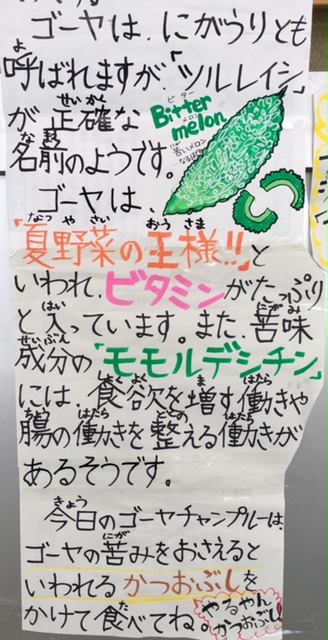 ゴーヤは、にがうりとも
呼ばれますが、「ツルレイシ」
が正確な
名前のようです。
ビター
Bitter
メロン
melon
苦いメロン
ゴーヤは、
「夏野菜の王様!!」と
いわれ、ビタミンがたっぷり
と入っています。また、苦味
成分の「モモルデシチン」
には、食欲を増す働きや
腸の働きを整える働きが
あるそうです。
今日のゴーヤチャンプルーは、
ゴーヤの苦みをおさえると
いわれるかつおぶしを
かけて食べてね。
やるやん
かつおぶし